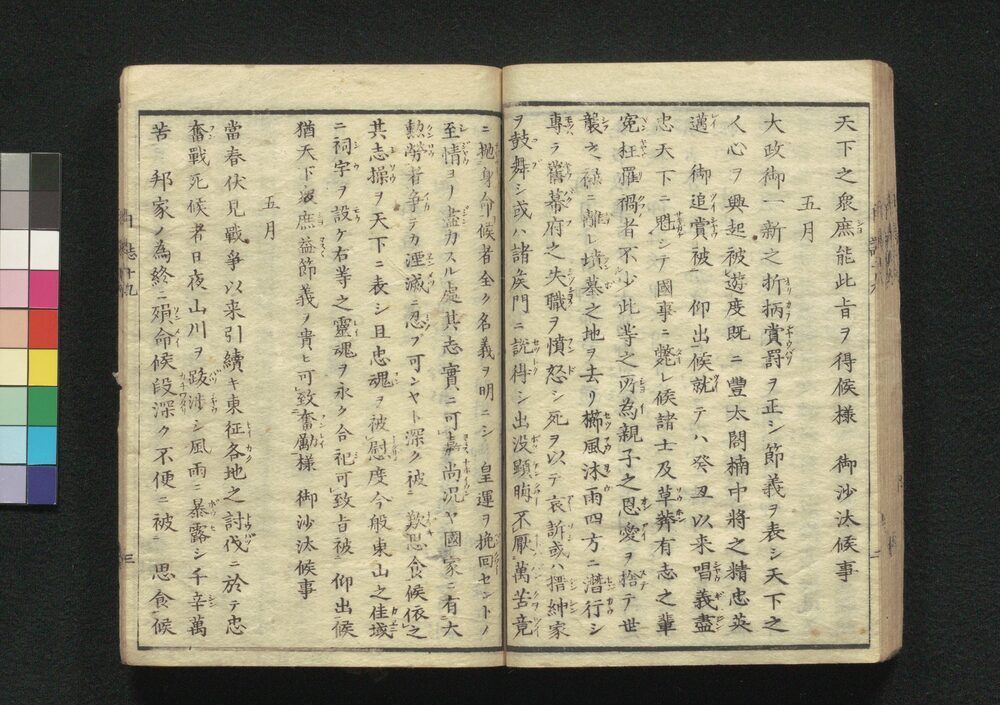 天下之衆庶能此旨ヲ得候様　御沙汰候事
五月
大政御一新之折柄賞罰ヲ正シ節義ヲ表シ天下之
人心ヲ興起被遊度既ニ豊太閤楠中將之精忠英
邁　御追賞被　仰出候就テハ癸丑以来唱義盡
忠天下ニ魁シテ國事ニ斃レ候諸士及草莽有志之輩
寃枉羅禍者不少此等之所為親子之恩愛ヲ捨テ世
襲之禄ニ離レ墳墓之地ヲ去リ櫛風沐雨四方ニ潜行シ
專ラ舊幕府之失職ヲ憤怒シ死ヲ以テ哀訴或ハ搢紳家
ヲ鼓舞シ或ハ諸矦門ニ説得シ出没顕晦不厭萬苦竟
ニ抛身命候者全ク名義ヲ明ニシ　皇運ヲ挽回セントノ
至情ヨリ盡力スル處其志實ニ可嘉尚況ヤ國家ニ有大
勲勞者爭テカ湮滅ニ忍フ可ンヤト深ク被　歎思食候依之
其志操ヲ天下ニ表シ且忠魂ヲ被慰度今般東山之佳域
ニ祠宇ヲ設ケ右等之靈魂ヲ永ク合祀可致旨被　仰出候
猶天下衆庶益節義ノ貴ヒ可致奮勵様　御沙汰候事
五月
當春伏見戰爭以来引續キ東征各地之討伐ニ於テ忠
奮戰死候者日夜山川ヲ跋渉シ風雨ニ暴露シ千辛萬
苦　邦家ノ為終ニ殞命候段深ク不便ニ被　思食候